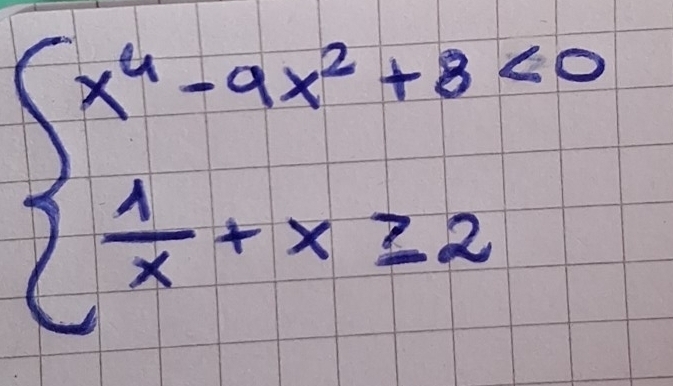 x⁴ - 9x² + 8 < 0
1/x + x ≥ 2